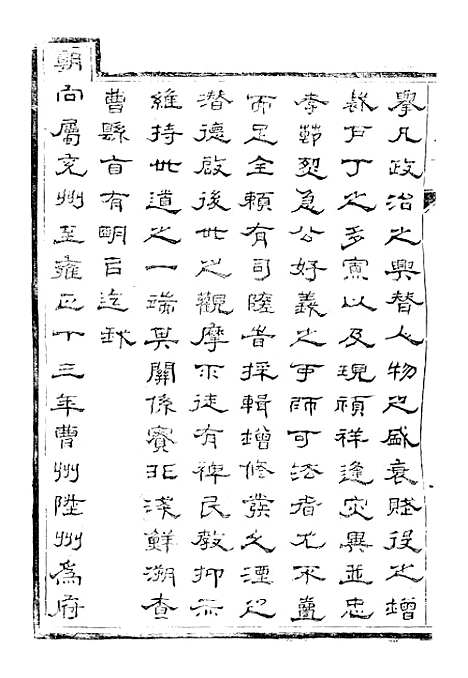 舉凡政治之興替人物之盛衰賤役之增
裁戶丁之多寡以及現禎祥逢灾異並忠
孝節烈急公好義之事師可法者尤不重
而足全賴有司隨旹採輯增修發之湮之
潛德啟後世之觀摩不徒有裨民教抑亦
維持世道之一端其關係實非淺鮮溯查
曹縣旨有朙百迄㺵
朝向屬兗州至雍正十三年曹州陞州為府